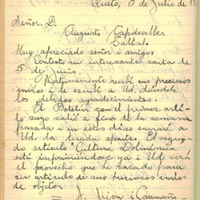 Quito, 3 de Julio de 19
Señor D.
Augusto Capdeville
Taltal.
Muy apreciado señor i amigo:
Contesto su interesante carta de
5 de Junio.
Oportunamente recibí sus preciosos
envíos i de escribí a Ud. dándole
los debidos agradecimientos.
El Boletín con el primer artí-
culo suyo salió a fines de la semana
pasada i en estos días
a Ud. la tirada aparte. El segun-
do artículo "Cultura Dolménica"
está imprimiéndose i ya verá Ud.
el provecho que he sacado para
un artículo de sus preciosos envíos
de objetos.
J. Jijón i Caamaño